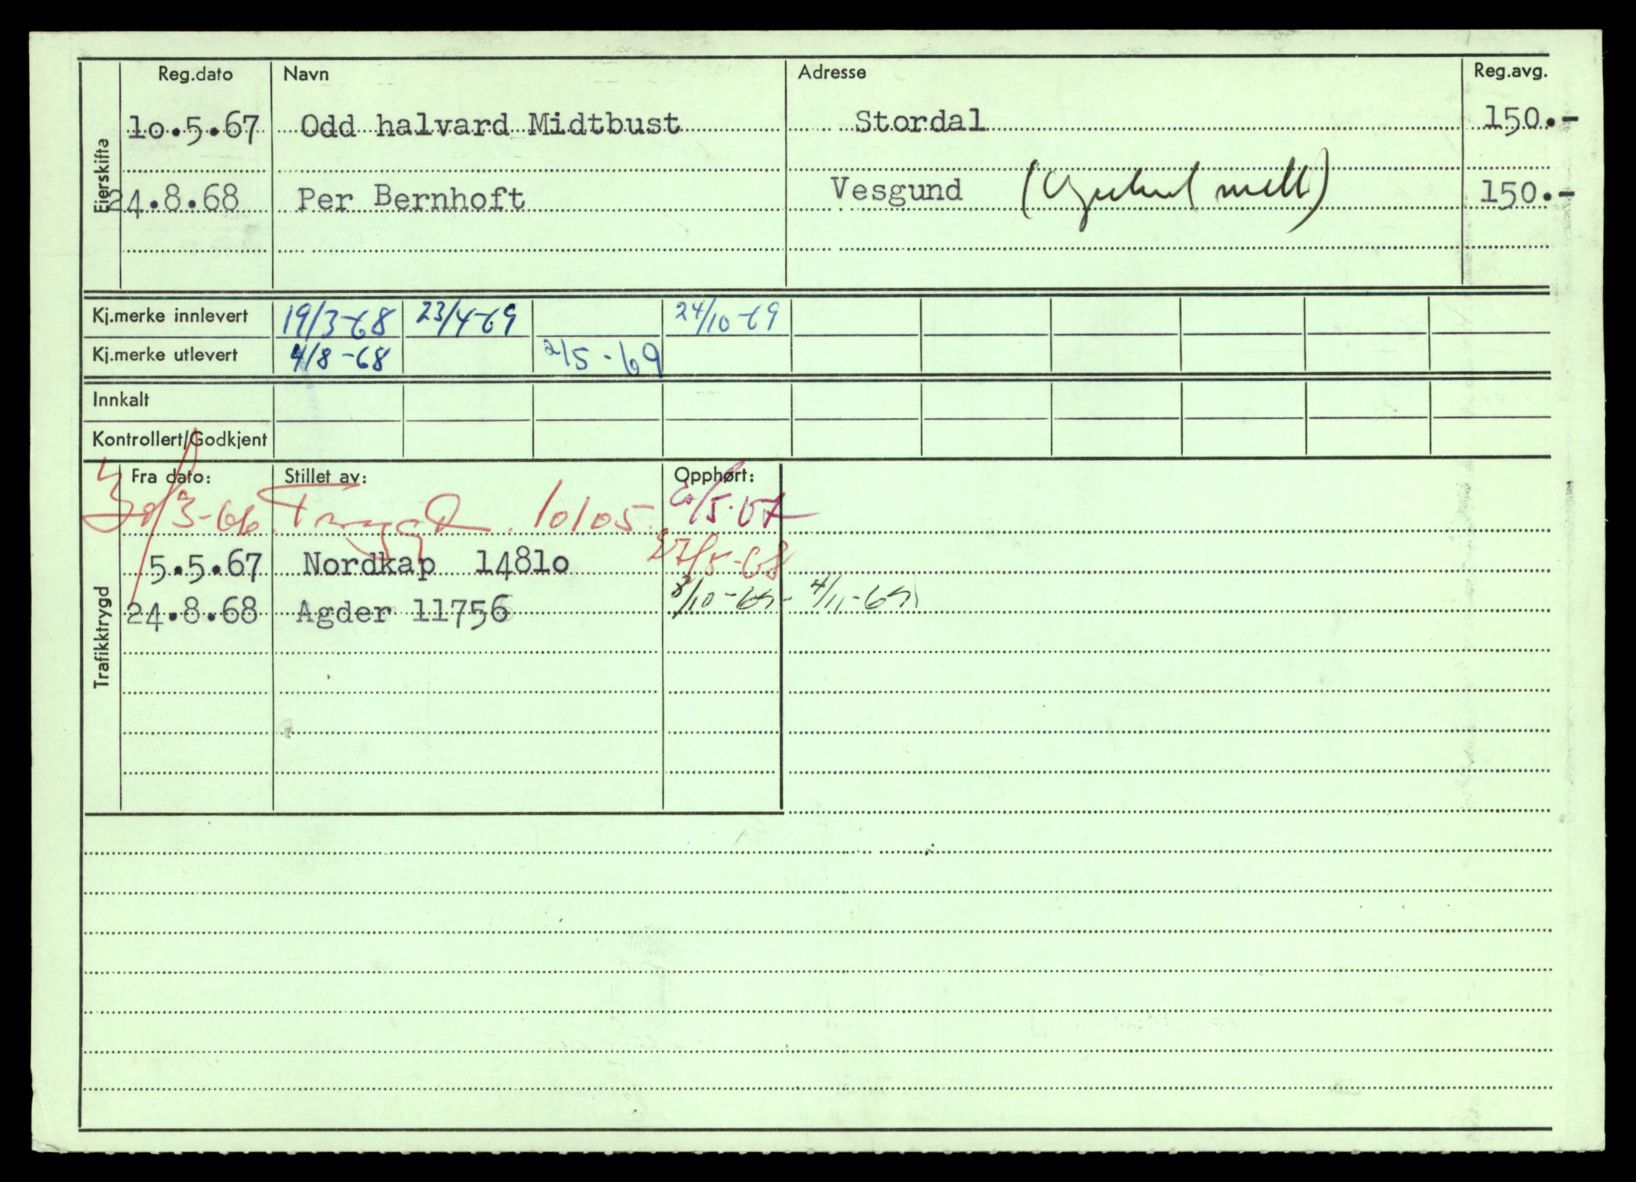 Reg.dato Navn Adresse Reg.avg.
Eierskifte
10.5.67 Odd halvard Midtbust Stordal 150.-
24.8.68 Per Bernhoft Vesgund 150.-
Kj.merke innlevert 19/3-68 23/4-69 24/10-69
Kj.merke utlevert 4/8-68 2/5-69
Innkalt
Kontrollert/Godkjent
Trafikktrygd
Fra dato: Stillet av: Opphørt:
Trygd 10105
5.5.67 Nordkap 14810 27/5-68
24.8.68 Agder 11756 4/11-69